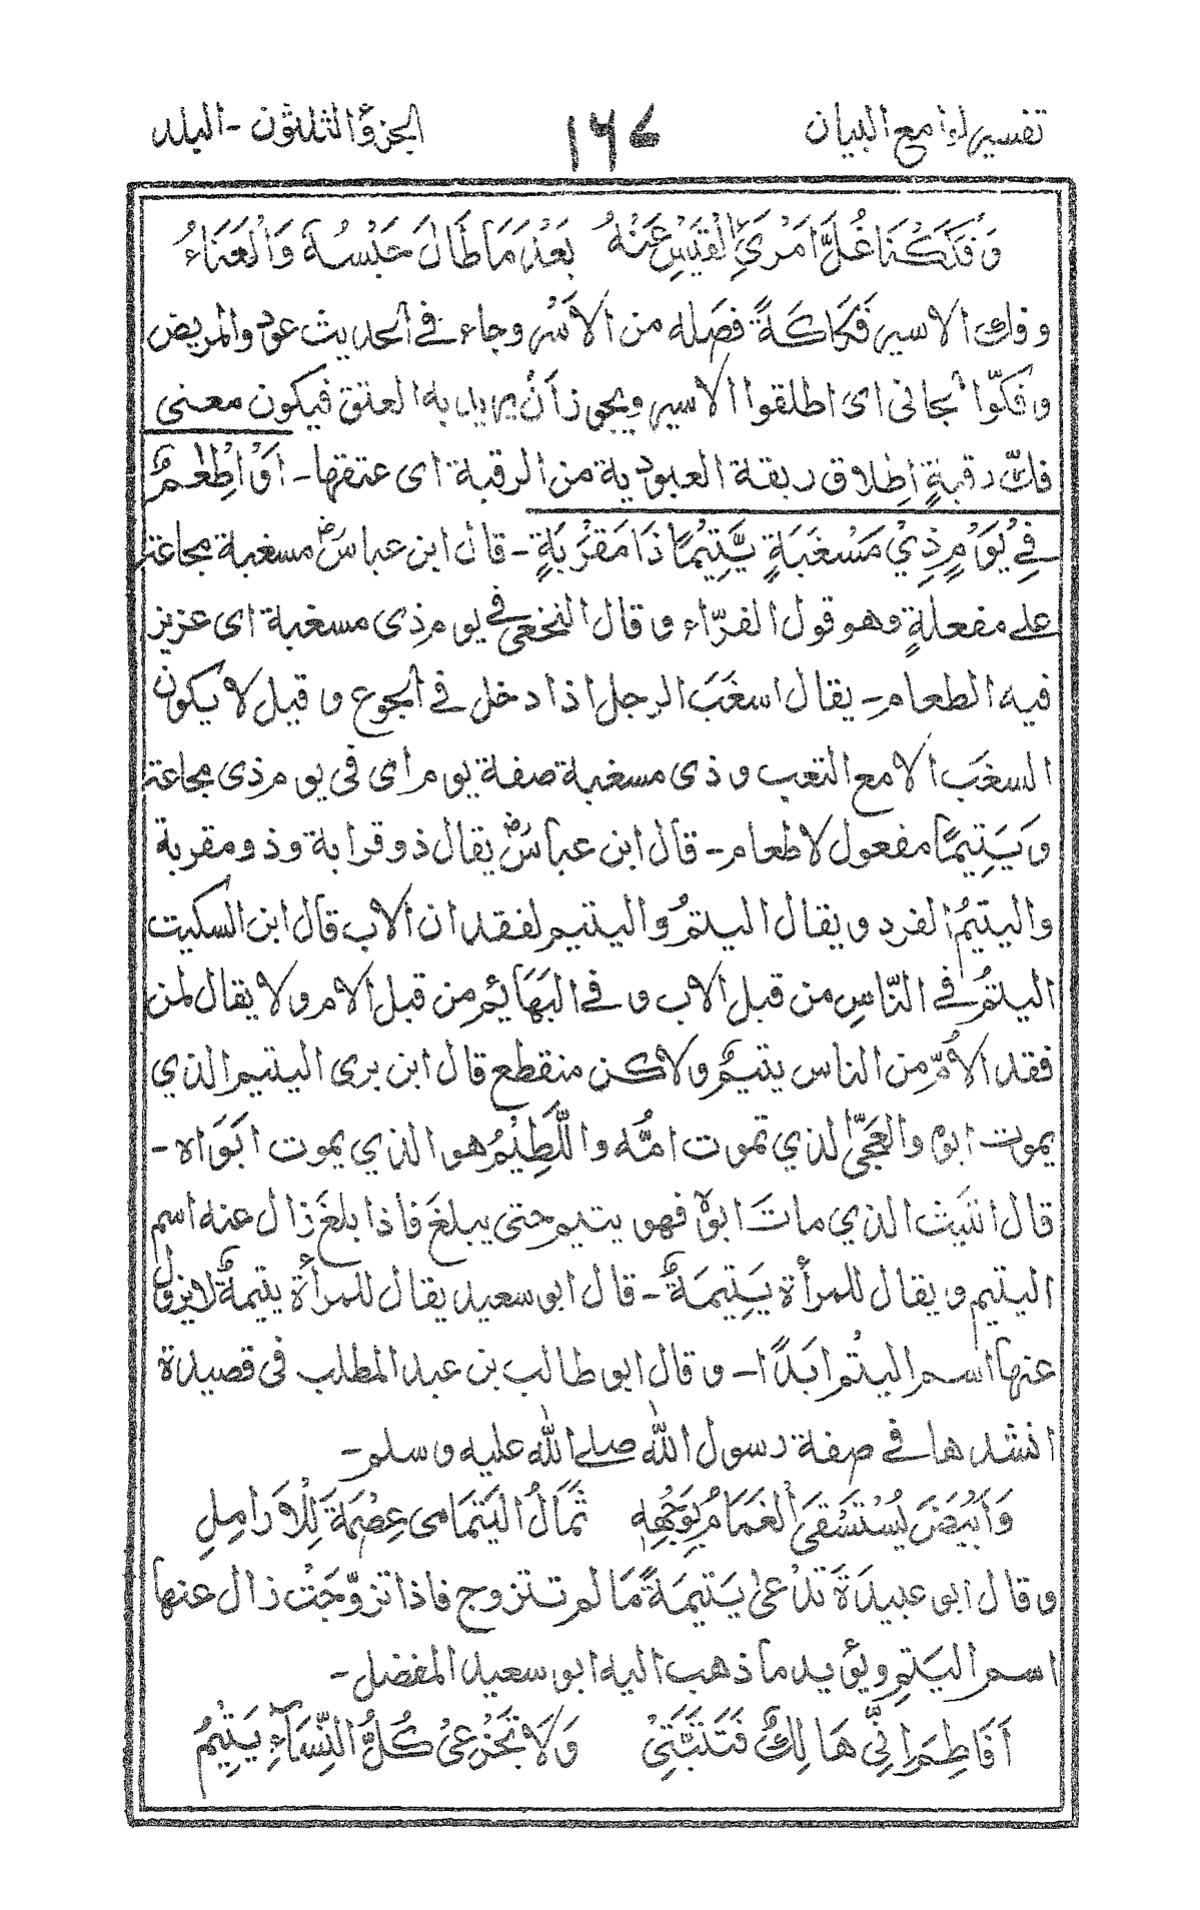 تفسير لوامع البيان ١٦٧ الجزء الثلثون - البلد
وَفَكَكْنَا غُلَّ امْرَئِ الْقَيْسِ عَنْهُ بَعْدَ مَا طَالَ حَبْسُهُ وَالْعَنَاءُ
وفك الاسير فَكَاكَةً فصله من الاَسْر وجاء في الحديث عودوا المريض
وفُكّوا العانى اى اطلقوا الاسير ويجوز أنْ يريد به العتق فيكون معنى
فكّ رقبةٍ اِطلاق ربقة العبودية من الرقبة اى عتقها - اَوْ اِطْعٰمٌ
فِي يَوْمٍ ذِيْ مَسْغَبَةٍ يَّتِيْمًا ذَا مَقْرَبَةٍ - قال ابن عباسؓ مسغبة مجاعة
على مفعلةٍ وهو قول الفرّاء وقال النخعى فى يوم ذى مسغبة اى عزيز
فيه الطعام - يقال اسغَبَ الرجل اذا دخل في الجوع وقيل لا يكون
السغَب الا مع التعب وذى مسغبة صفة يوم اى فى يوم ذى مجاعة
وَيَتِيمًا مفعول لاطعام - قال ابن عباسؓ يقال ذو قرابة وذو مقربة
واليتيمُ الفرد ويقال اليتمُ واليتيم لفقدان الاب قال ابن السكيت
اليتمُ في النّاسِ من قبل الاب وفي البَهَائم من قبل الام ولا يقال لمن
فقد الاُمّ من الناس يتيمٌ ولاكن منقطع قال ابن برى اليتيم الذي
يموت ابوه والعَجِيّ الذي تموت امُّه واللَّطِيْمُ هو الذي يموت ابَوَاه -
قال الليث الذي ماتَ ابوهُ فهو يتيم حتى يبلغَ فاذا بلغَ زال عنه اسم
اليتيم ويقال للمرأة يَتِيمَةٌ - قال ابو سعيد يقال للمرأة يتيمةٌ لا يزول
عنها اسم اليتُم ابَدًا - وقال ابو طالب بن عبد المطلب فى قصيدة
انشدها في صفة رسول اللّٰه صلى اللّٰه عليه وسلم -
وَاَبْيَضَ يُسْتَسْقَى الْغَمَامُ بِوَجْهِهٖ ثِمَالُ الْيَتَامٰى عِصْمَةٌ لِلْاَرَامِلِ
وقال ابو عبيدَةَ تُدْعىٰ يَتِيمَةً مَا لم تتزوج فاذا تزوّجَتْ زال عنها
اسم اليَتمِ ويؤيد ما ذهب اليه ابو سعيد المفضل -
اَفَاطِمَ اِنِّي هَالِكٌ فَتَثَبَّتِيْ وَلَا تَجْزَعِيْ كُلُّ النِّسَآءِ يَتِيْمُ